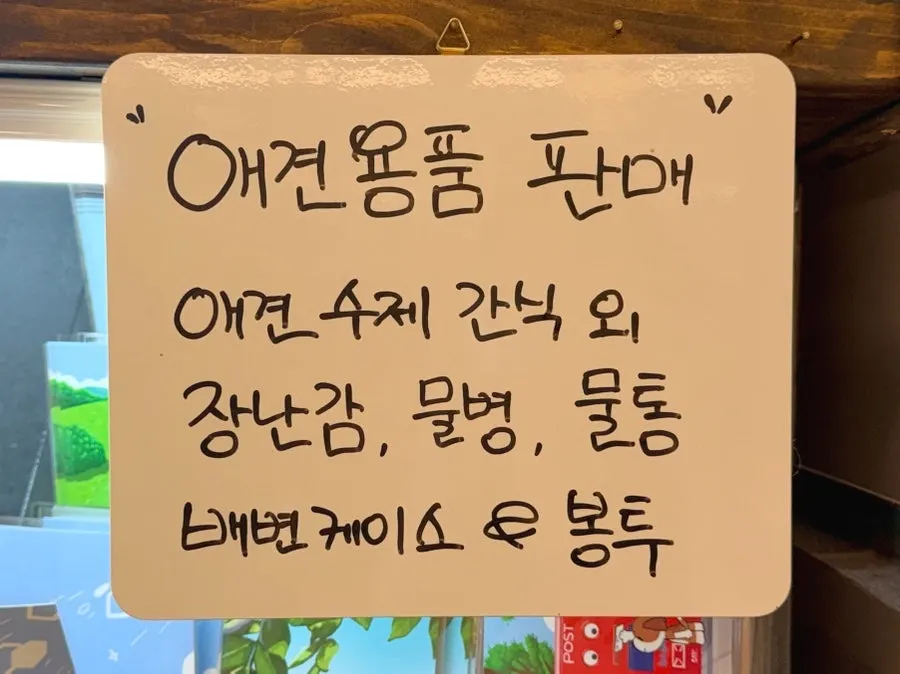 〃 애견용품 판매 〃
애견 수제 간식 외
장난감, 물병, 물통
배변케이스 & 봉투
POST